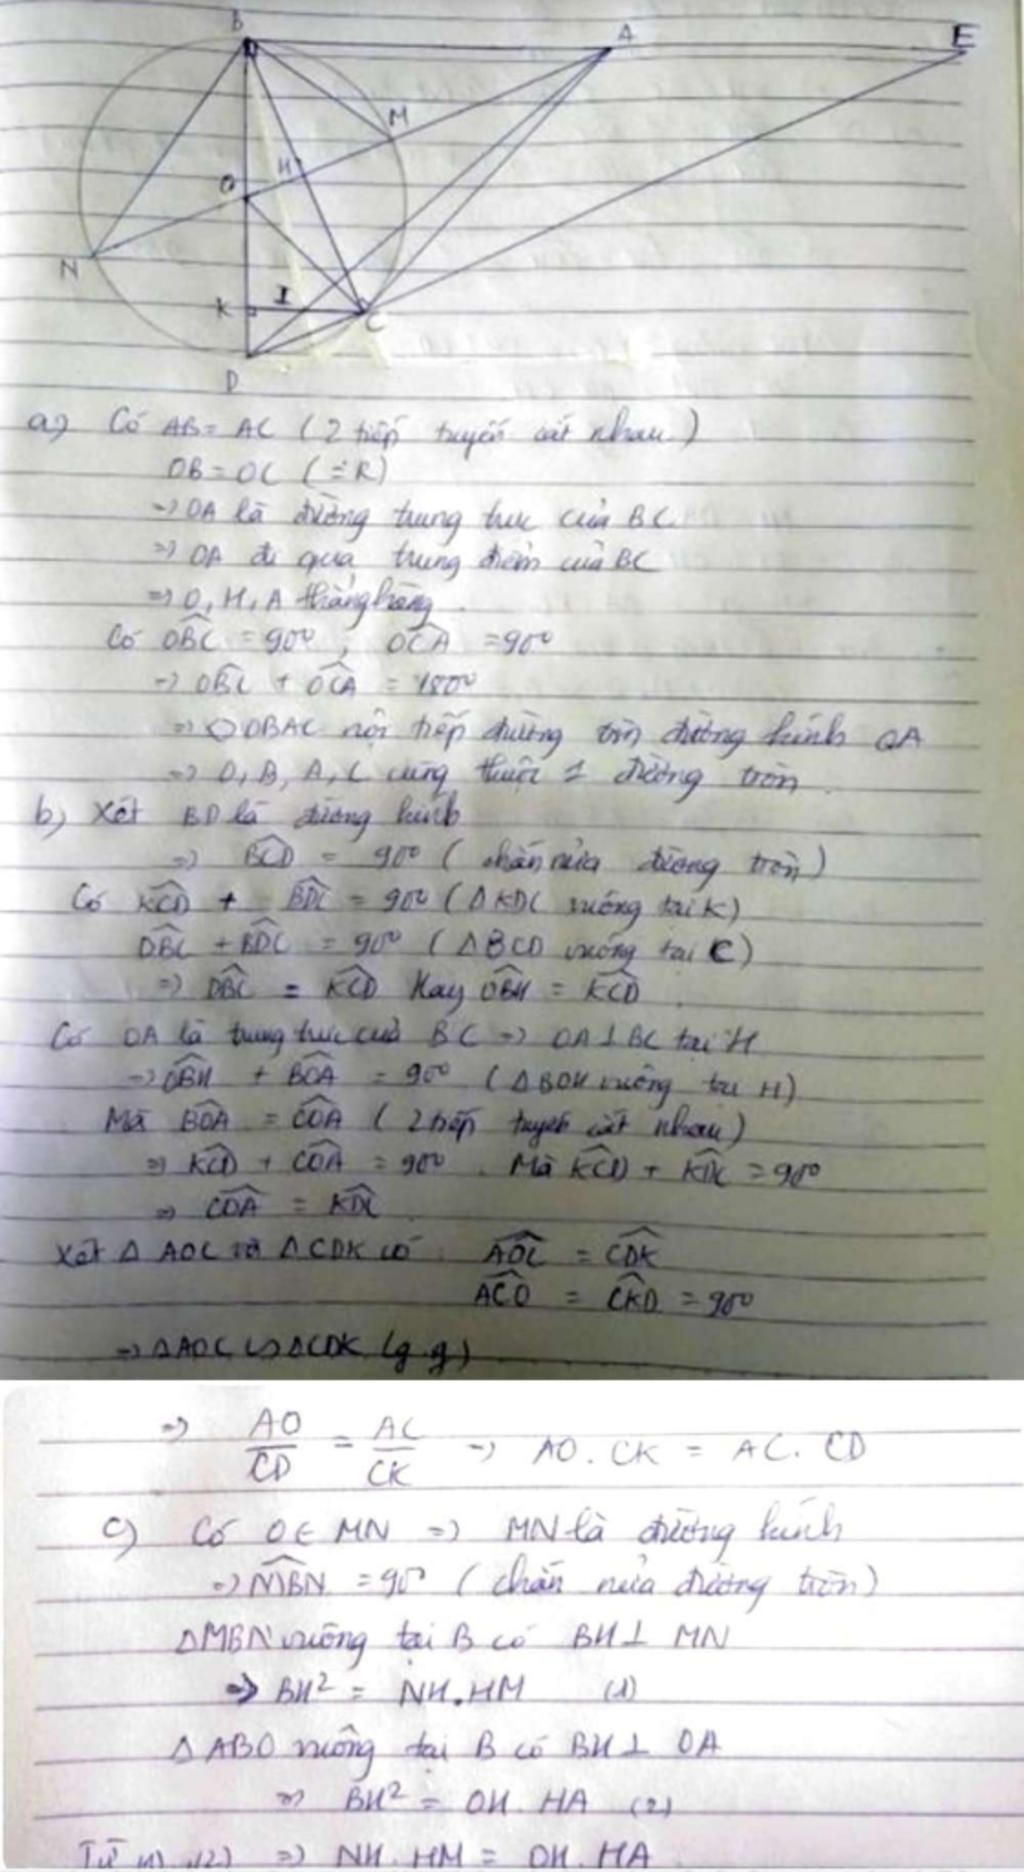 B
A
E
M
H
O
N
K
I
C
D
a) Có AB = AC ( 2 tiếp tuyến cắt nhau )
OB = OC ( = R )
=> OA là đường trung trực của BC
=> OA đi qua trung điểm của BC
=> O, H, A thẳng hàng.
Có OBC = 90° ; OCA = 90°
=> OBC + OCA = 180°
=> ◇ OBAC nội tiếp đường tròn đường kính OA
=> O, B, A, C cùng thuộc 1 đường tròn.
b) Xét BD là đường kính
=> BCD = 90° ( chắn nửa đường tròn )
Có KCD + BDC = 90° ( Δ KDC vuông tại K )
DBC + BDC = 90° ( Δ BCD vuông tại C )
=> DBC = KCD Hay OBH = KCD
Có OA là trung trực của BC => OA ⊥ BC tại H
=> OBH + BOA = 90° ( Δ BOH vuông tại H )
Mà BOA = COA ( 2 tiếp tuyến cắt nhau )
=> KCD + COA = 90°. Mà KCD + KDC = 90°
=> COA = KDC
Xét Δ AOC và Δ CDK có AOC = CDK
ACO = CKD = 90°
=> Δ AOC ∽ Δ CDK (g.g)
=> AO/CD = AC/CK => AO . CK = AC . CD
c) Có O ∈ MN => MN là đường kính
=> MBN = 90° ( chắn nửa đường tròn )
Δ MBN vuông tại B có BH ⊥ MN
=> BH² = NH . HM (1)
Δ ABO vuông tại B có BH ⊥ OA
=> BH² = OH . HA (2)
Từ (1), (2) => NH . HM = OH . HA